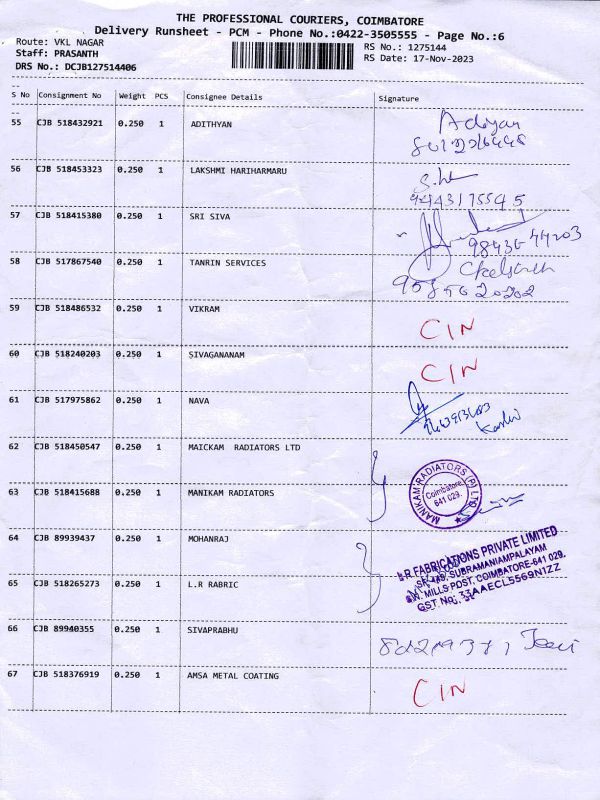 THE PROFESSIONAL COURIERS, COIMBATORE
Delivery Runsheet - PCM - Phone No.:0422-3505555 - Page No.:6
Route: VKL NAGAR
RS No.: 1275144
Staff: PRASANTH
RS Date: 17-Nov-2023
DRS No.: DCJB127514406
S No Consignment No Weight PCS Consignee Details Signature
55 CJB 518432921 0.250 1 ADITHYAN
56 CJB 518453323 0.250 1 LAKSHMI HARIHARMARU
57 CJB 518415380 0.250 1 SRI SIVA
58 CJB 517867540 0.250 1 TANRIN SERVICES
59 CJB 518486532 0.250 1 VIKRAM CIN
60 CJB 518240203 0.250 1 SIVAGANANAM CIN
61 CJB 517975862 0.250 1 NAVA
62 CJB 518450547 0.250 1 MAICKAM RADIATORS LTD
63 CJB 518415688 0.250 1 MANIKAM RADIATORS
MANIKAM RADIATORS (P) LTD
Coimbatore
641 029.
64 CJB 89939437 0.250 1 MOHANRAJ
65 CJB 518265273 0.250 1 L.R RABRIC
L.R FABRICATIONS PRIVATE LIMITED
SUBRAMANIAMPALAYAM
MILLS POST, COIMBATORE-641 029.
GST No: 33AAECL5569N1ZZ
66 CJB 89940355 0.250 1 SIVAPRABHU
67 CJB 518376919 0.250 1 AMSA METAL COATING CIN